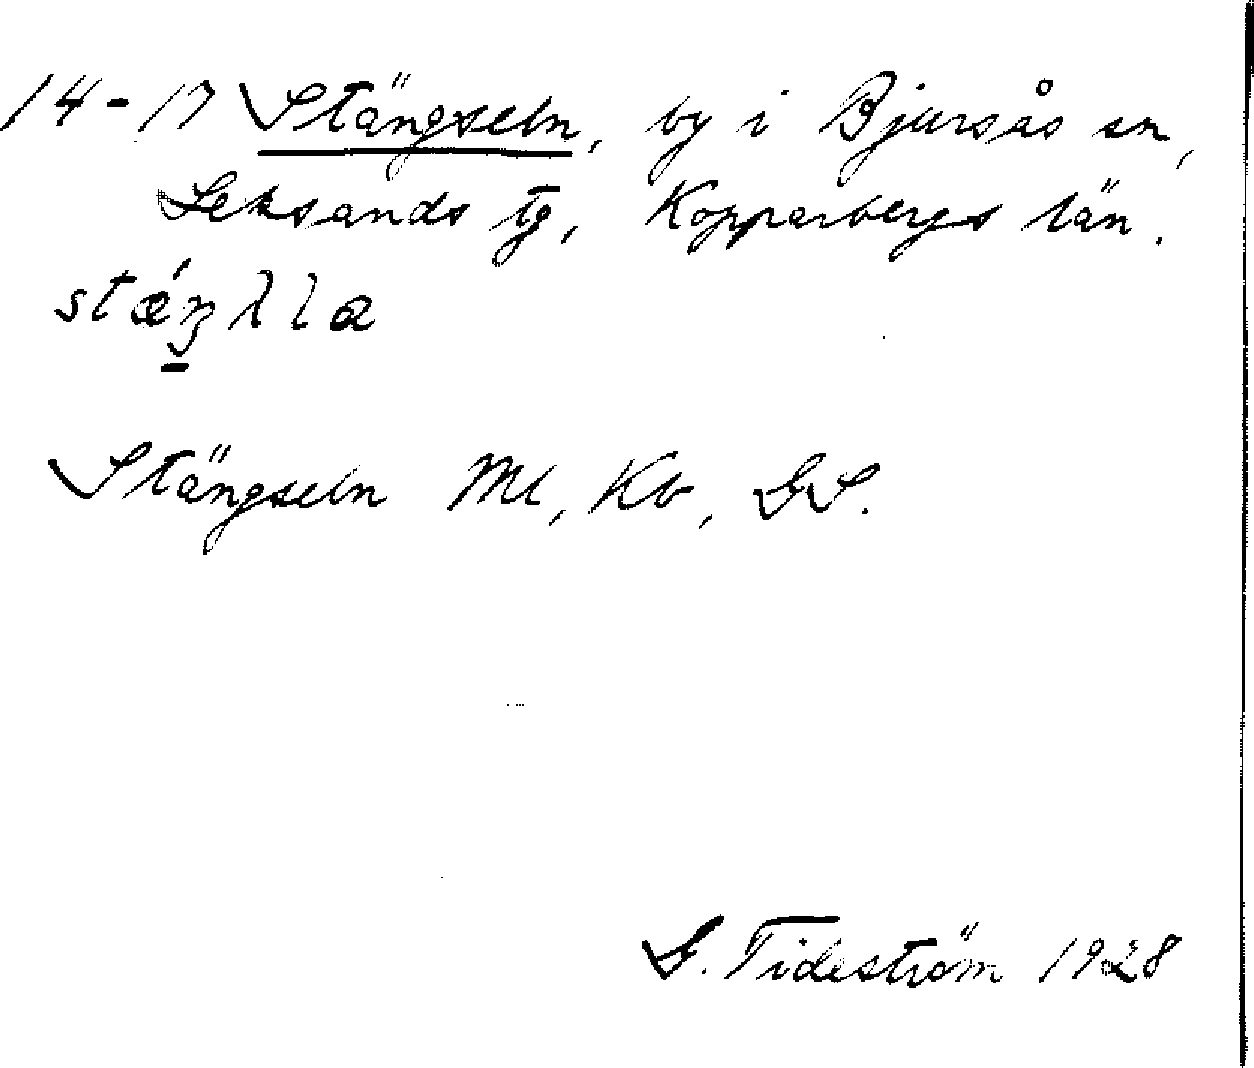 14-17 Stängseln, by i Bjursås sn,
Leksands tg, Kopparbergs län.
Stängseln Ml, Kb, GS.
G. Tideström 1928